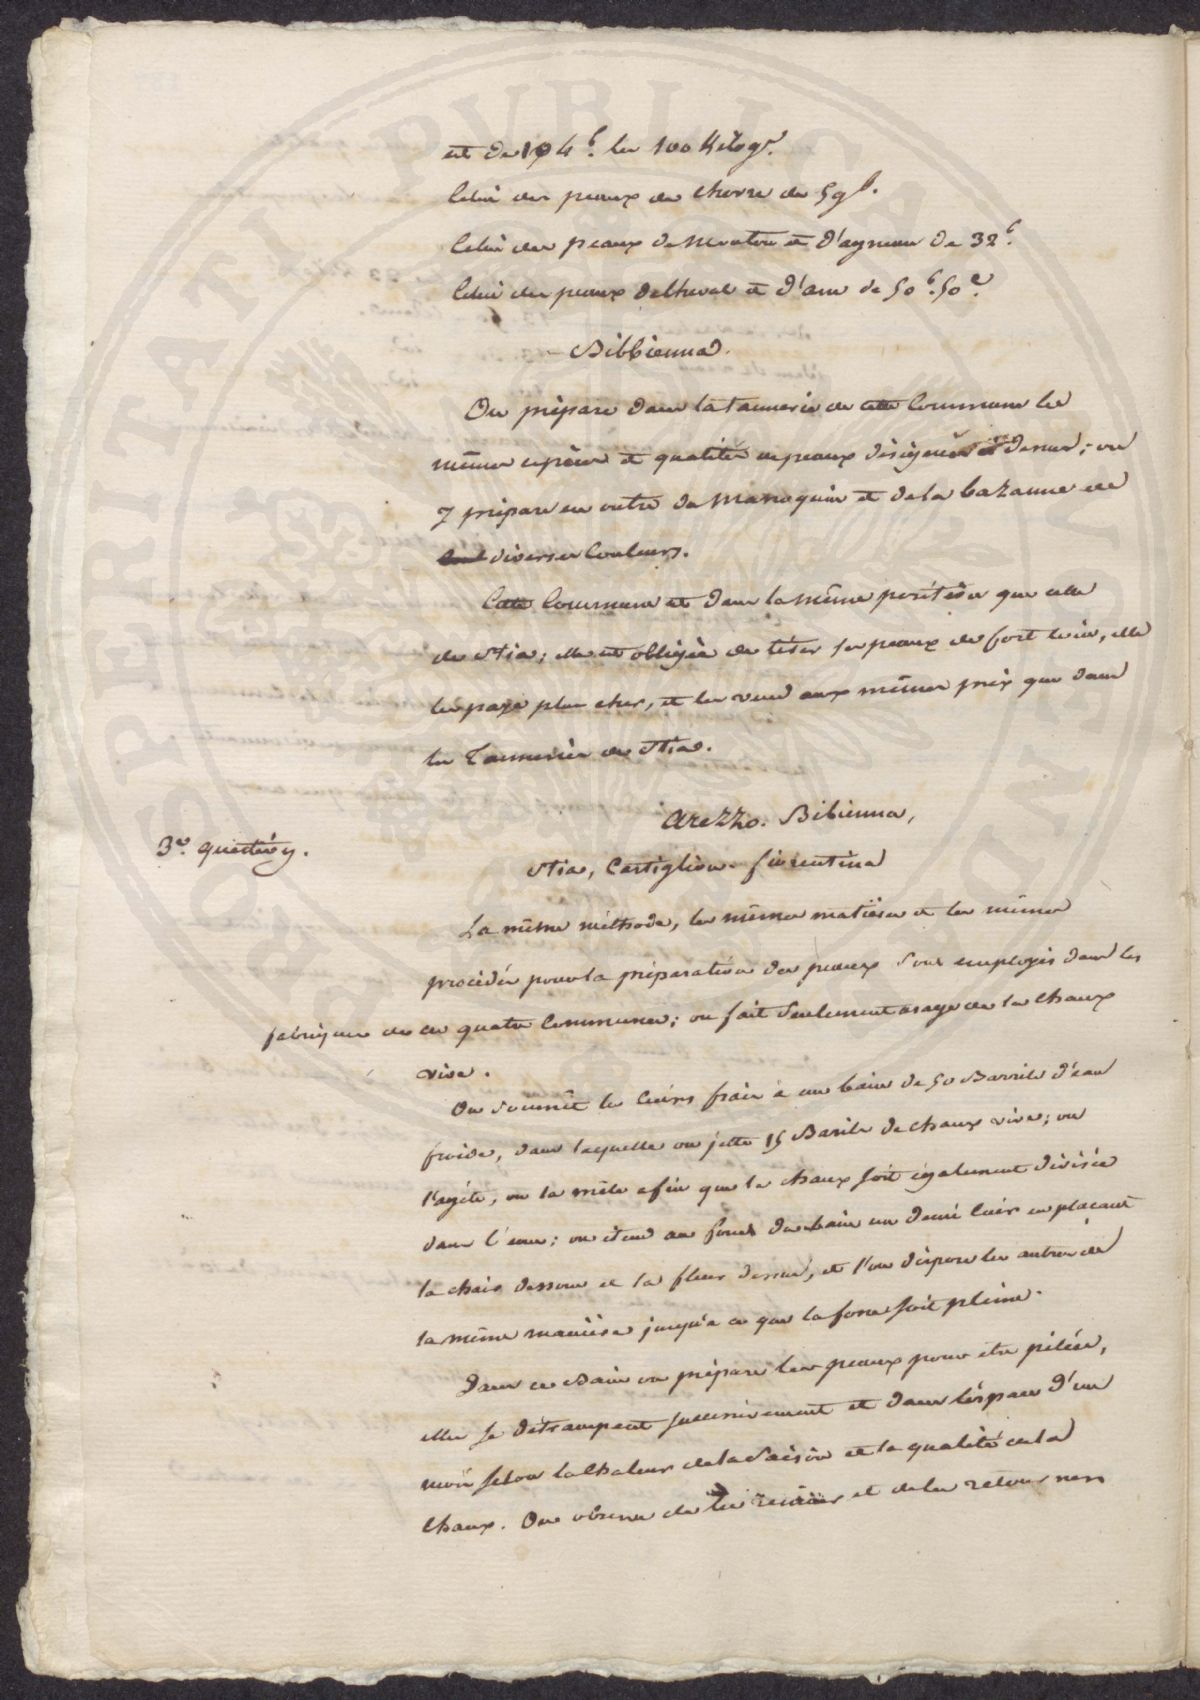 est de 194 f. les 100 Kilogr.
Celui des peaux de Chevre de 59 f.
Celui des peaux de Mouton et d'agneau de 32 f.
Celui des peaux de Cheval et d'ane de 50 f. 50 c.
Bibbienna.
On prépare dans la tannerie de cette Commune les
mêmes especes et qualités de peaux désignées ci dessus; on
y prépare en outre du Maroquin et de la bazanne de
diverses Couleurs.
Cette Commune est dans la même position que celle
de Stia; elle est obligée de tirer ses peaux de fort loin, elle
les paye plus cher, et les vend aux mêmes prix que dans
les Tanneries de Stia.
Arezzo. Bibienna,
3e. question.
Stia, Castiglion-fiorentina
La même méthode, les mêmes matières et les mêmes
procédés pour la préparation des peaux sont employés dans les
fabriques de ces quatre Communes; on fait seulement usage de la Chaux
vive.
On soumêt les Cuirs frais à un bain de 50 Barrils d'eau
froide, dans laquelle on jette 15 Barils de Chaux vive; on
l'agite, on la mêle afin que la chaux soit également divisée
dans l'eau; on etend au fond du bain un demi Cuir en plaçant
la chair dessous et la fleur dessus, et l'on dispose les autres de
la même maniere jusqu'à ce que la fosse soit pleine.
Dans ce Bain on prépare les peaux pour etre pelées,
elles se détrampent successivement et dans l'espace d'un
mois selon la Chaleur de la Saison et la qualité de la
Chaux. On observe de les et de les retourner